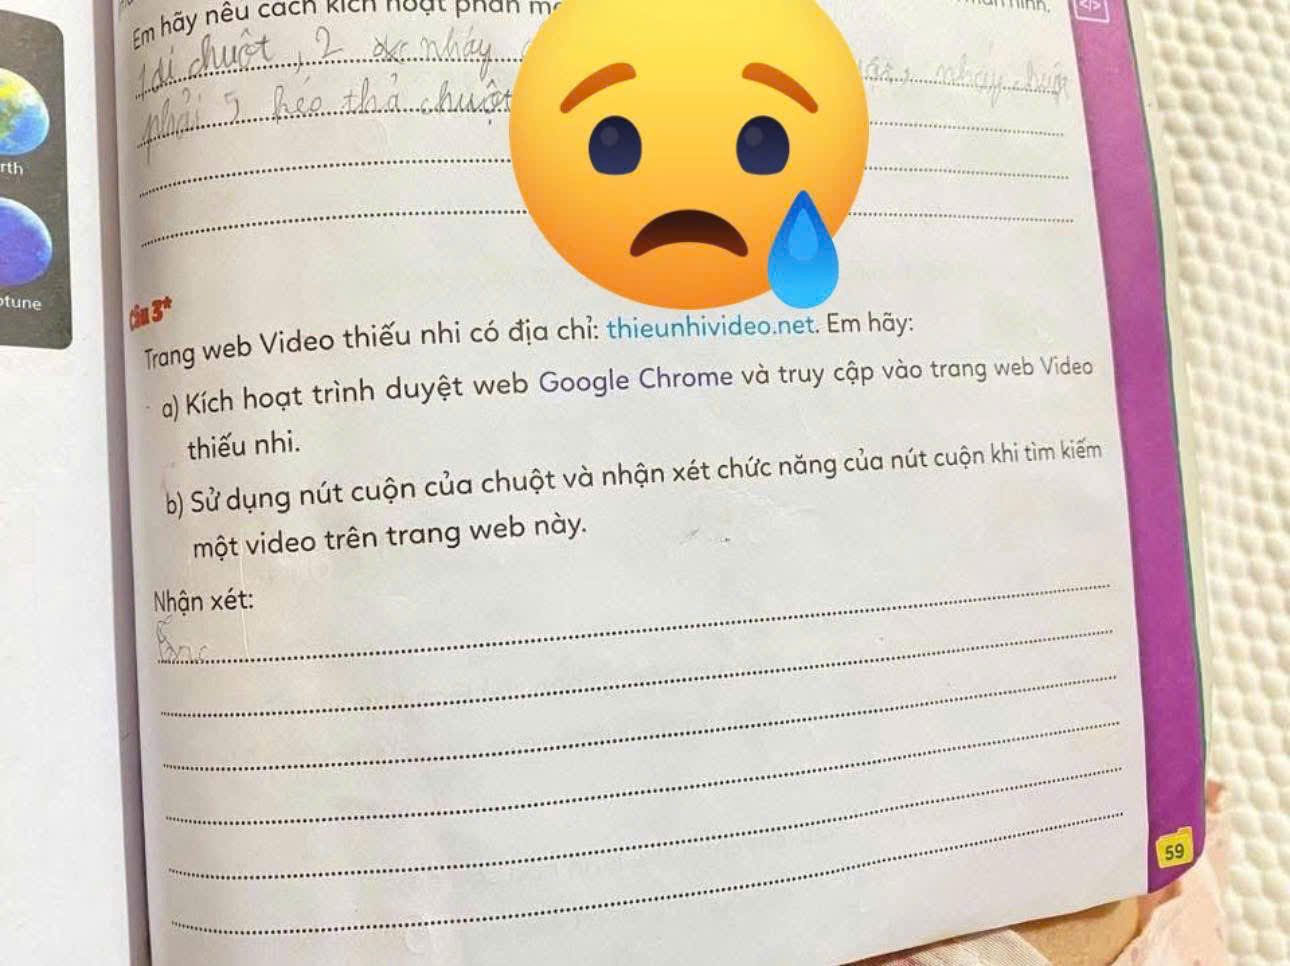 Em hãy nêu cách kích hoạt phần
rth
chuột, 2 nháy
nháy chuột
phải, kéo thả chuột
otune
Câu 3*
Trang web Video thiếu nhi có địa chỉ: thieunhivideo.net. Em hãy:
a) Kích hoạt trình duyệt web Google Chrome và truy cập vào trang web Video
thiếu nhi.
b) Sử dụng nút cuộn của chuột và nhận xét chức năng của nút cuộn khi tìm kiếm
một video trên trang web này.
Nhận xét:
59